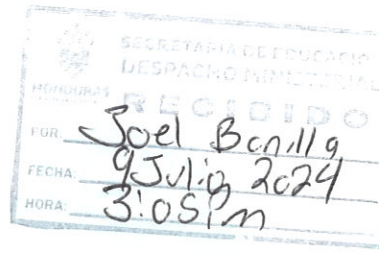 SECRETARIA DE EDUCACIO
DESPACHO MINISTERIAL
HONDURAS
RECIBIDO
POR: Joel Bonilla
FECHA: 9 Julio 2024
HORA: 3:05 pm